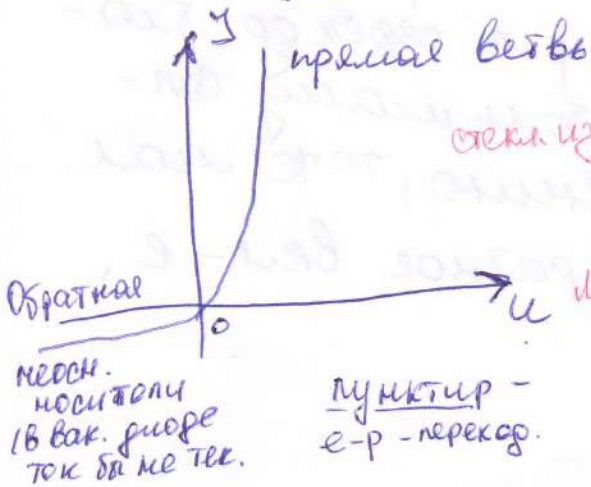 J
прямая ветвь
стекл. из
Обратная
0
U
неосн.
носители
(в вак. диоде
ток бы не тек.
пунктир -
e-p-переход.